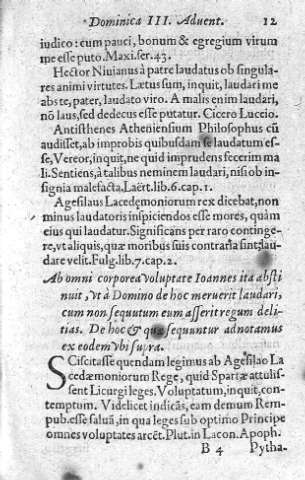 Dominica III. Aduent. 12
iudico: cum pauci, bonum & egregium virum
me esse puto. Maxi. ser. 43.
Hector Niuianus à patre laudatus ob singula-
res animi virtutes. Lætus sum, inquit, laudari me
abs te, pater, laudato viro. A malis enim laudari,
nõ laus, sed dedecus esse putatur. Cicero Luccio.
Antisthenes Atheniensium Philosophus cū
audisset, ab improbis quibusdam se laudatum es-
se, Vereor, inquit, ne quid imprudens fecerim ma
li. Sentiens, à talibus neminem laudari, nisi ob in-
signia malefacta. Laërt. lib. 6. cap. 1.
Agesilaus Lacedęmoniorum rex dicebat, non
minus laudatoris inspiciendos esse mores, quàm
eius qui laudatur. Significans per raro continge-
re, vt aliquis, quæ moribus suis contraria sint, lau-
dare velit. Fulg. lib. 7. cap. 2.
Ab omni corporea voluptate Ioannes ita absti
nuit, vt à Domino de hoc meruerit laudari,
cum non sequutum eum asserit regum deli-
tias. De hoc & quæ sequuntur adnotamus
ex eodem vbi supra.
SCiscitasse quendam legimus ab Agesilao La
cedæmoniorum Rege, quid Spartæ attulis-
sent Licurgi leges. Voluptatum, inquit, con-
temptum. Videlicet indicãs, eam demum Rem-
pub. esse saluã, in qua leges sub optimo Principe
omnes voluptates arcēt. Plut. in Lacon. Apoph.
B 4 Pytha-